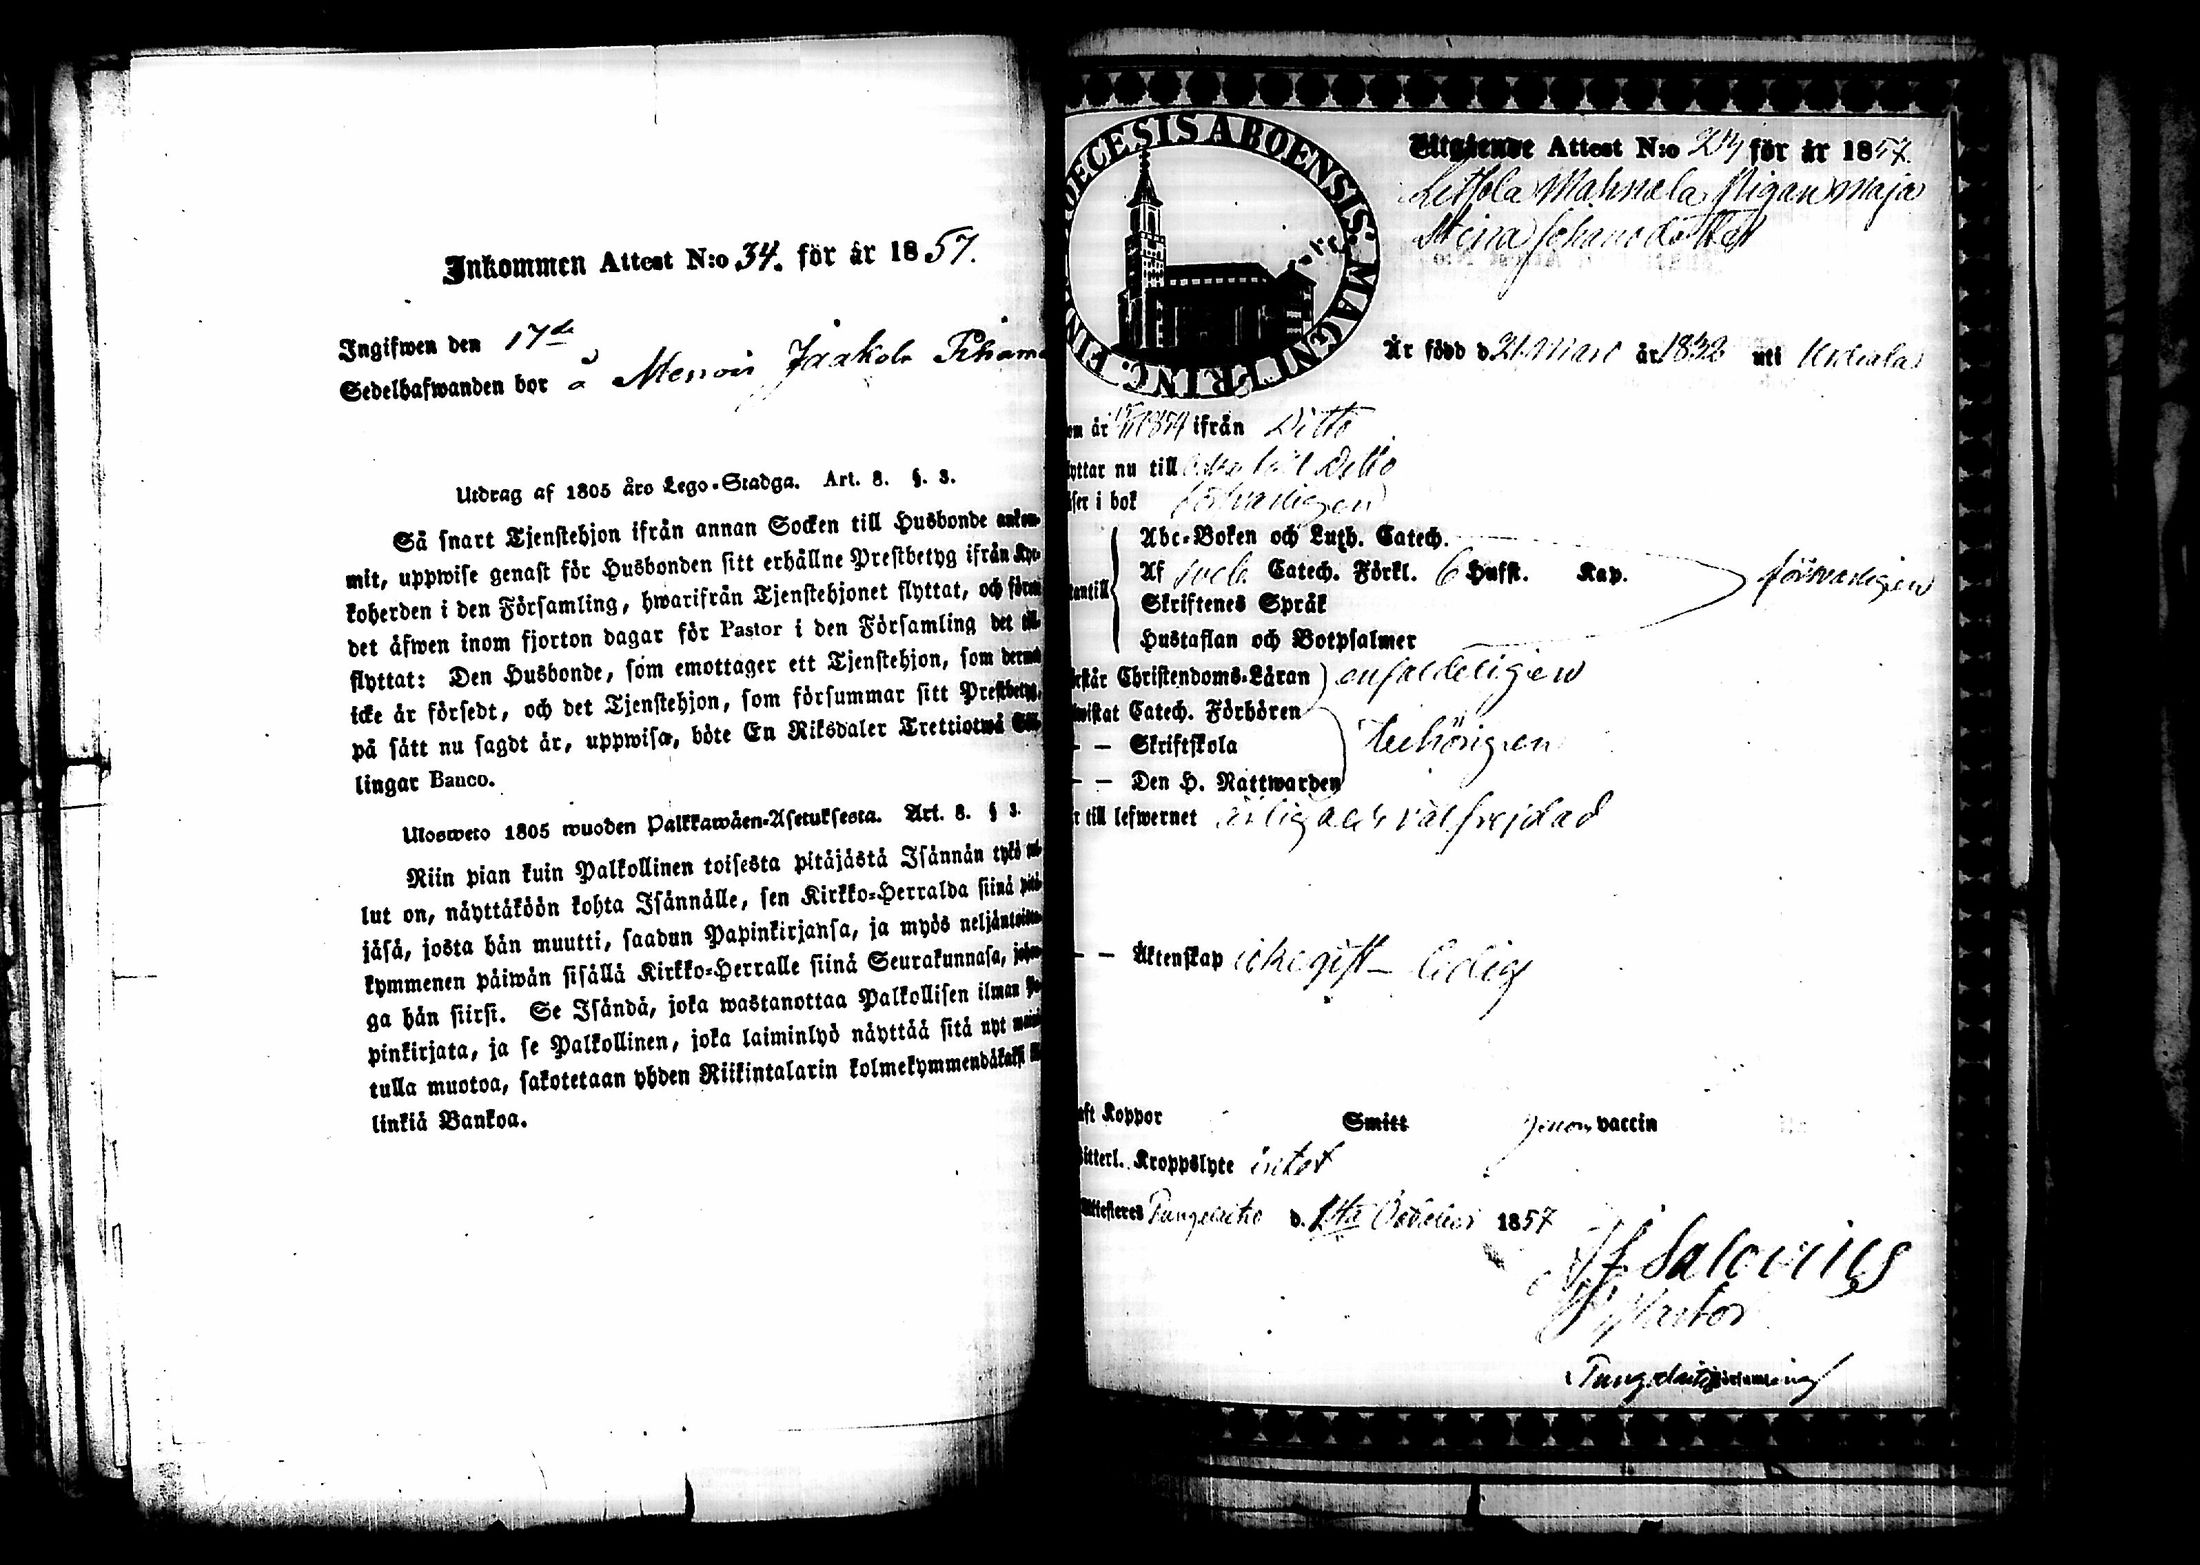 Inkommen Attest N:o 34. för år 1857.
Ingifwen den 17de
Sedelhafwanden bor å Menois Jaakola
Utdrag af 1805 års Lego-Stadga. Art. 8. §. 3.
Så snart Tjenstehjon ifrån annan Socken till Husbonde ankom-
mit, uppwise genast för Husbonden sitt erhållne Prestbetyg ifrån Kyr-
koherden i den Församling, hwarifrån Tjenstehjonet flyttat, och förete
det äfwen inom fjorton dagar för Pastor i den Församling det till-
flyttat: Den Husbonde, som emottager ett Tjenstehjon, som dermed
icke är försedt, och det Tjenstehjon, som försummar sitt Prestbetyg,
på sätt nu sagdt är, uppwisa, böte En Riksdaler Trettiotwå Skil-
lingar Banco.
Ulosweto 1805 wuoden Palkkawäen-Asetuksesta. Art. 8. § 3.
Niin pian kuin Palkollinen toisesta pitäjästä Isännän tykö tul-
lut on, näyttäköön kohta Isännälle, sen Kirkko-Herralda siinä pitä-
jäsä, josta hän muutti, saadun Papinkirjansa, ja myös neljäntoista-
kymmenen päiwän sisällä Kirkko-Herralle siinä Seurakunnasa, johon-
ga hän siirsi. Se Isändä, joka wastanottaa Palkollisen ilman Pa-
pinkirjata, ja se Palkollinen, joka laiminlyö näyttää sitä nyt maini-
tulla muotoa, sakotetaan yhden Riikintalarin kolmekymmendäkaksi kil-
linkiä Bankoa.
DIOECESIS ABOENSIS. MAGNI PRINC. FINL.
Utgående Attest N:o för år 1857.
Pigan Maja
Stina Johansdotter
Är född d. 21 Mars år 1832 uti Urdiala
om år 1854 ifrån Ditto
flyttar nu till Ditto
läser i bok försvarligen
Abc-Boken och Luth. Catech.
Af Sveb. Catech. Förkl. 6 Hufst. Kap. försvarligen
utantill
Skriftenes Språk
Hustaflan och Botpsalmer
förstår Christendoms-Läran enfaldeligen
bewistat Catech. Förhören
— — Skriftskola behörigen
— — Den H. Nattwarden
är till lefwernet ärlig och välfrejdad
— — Äktenskap icke gift – ledig
haft Koppor Smitt genom vaccin
witterl. Kroppslyte intet
Attesteres Tungelaitio d. 1sta October 1857
Salovius
Pastor
Tungelaitio Församling